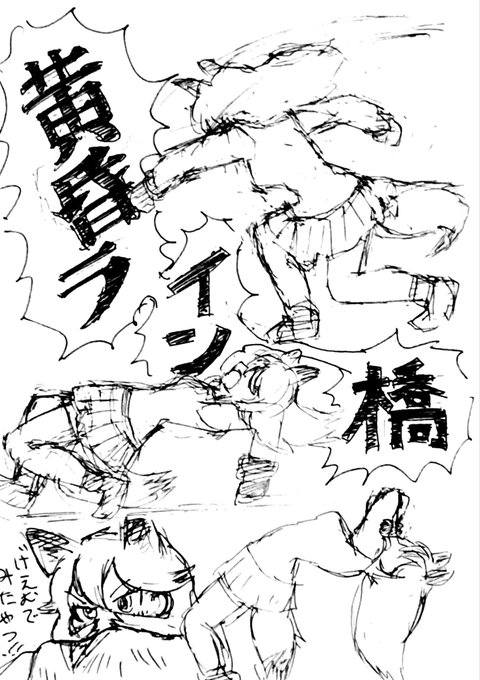 黄昏ラ
イン
橋
げえむで
みたやつ!!